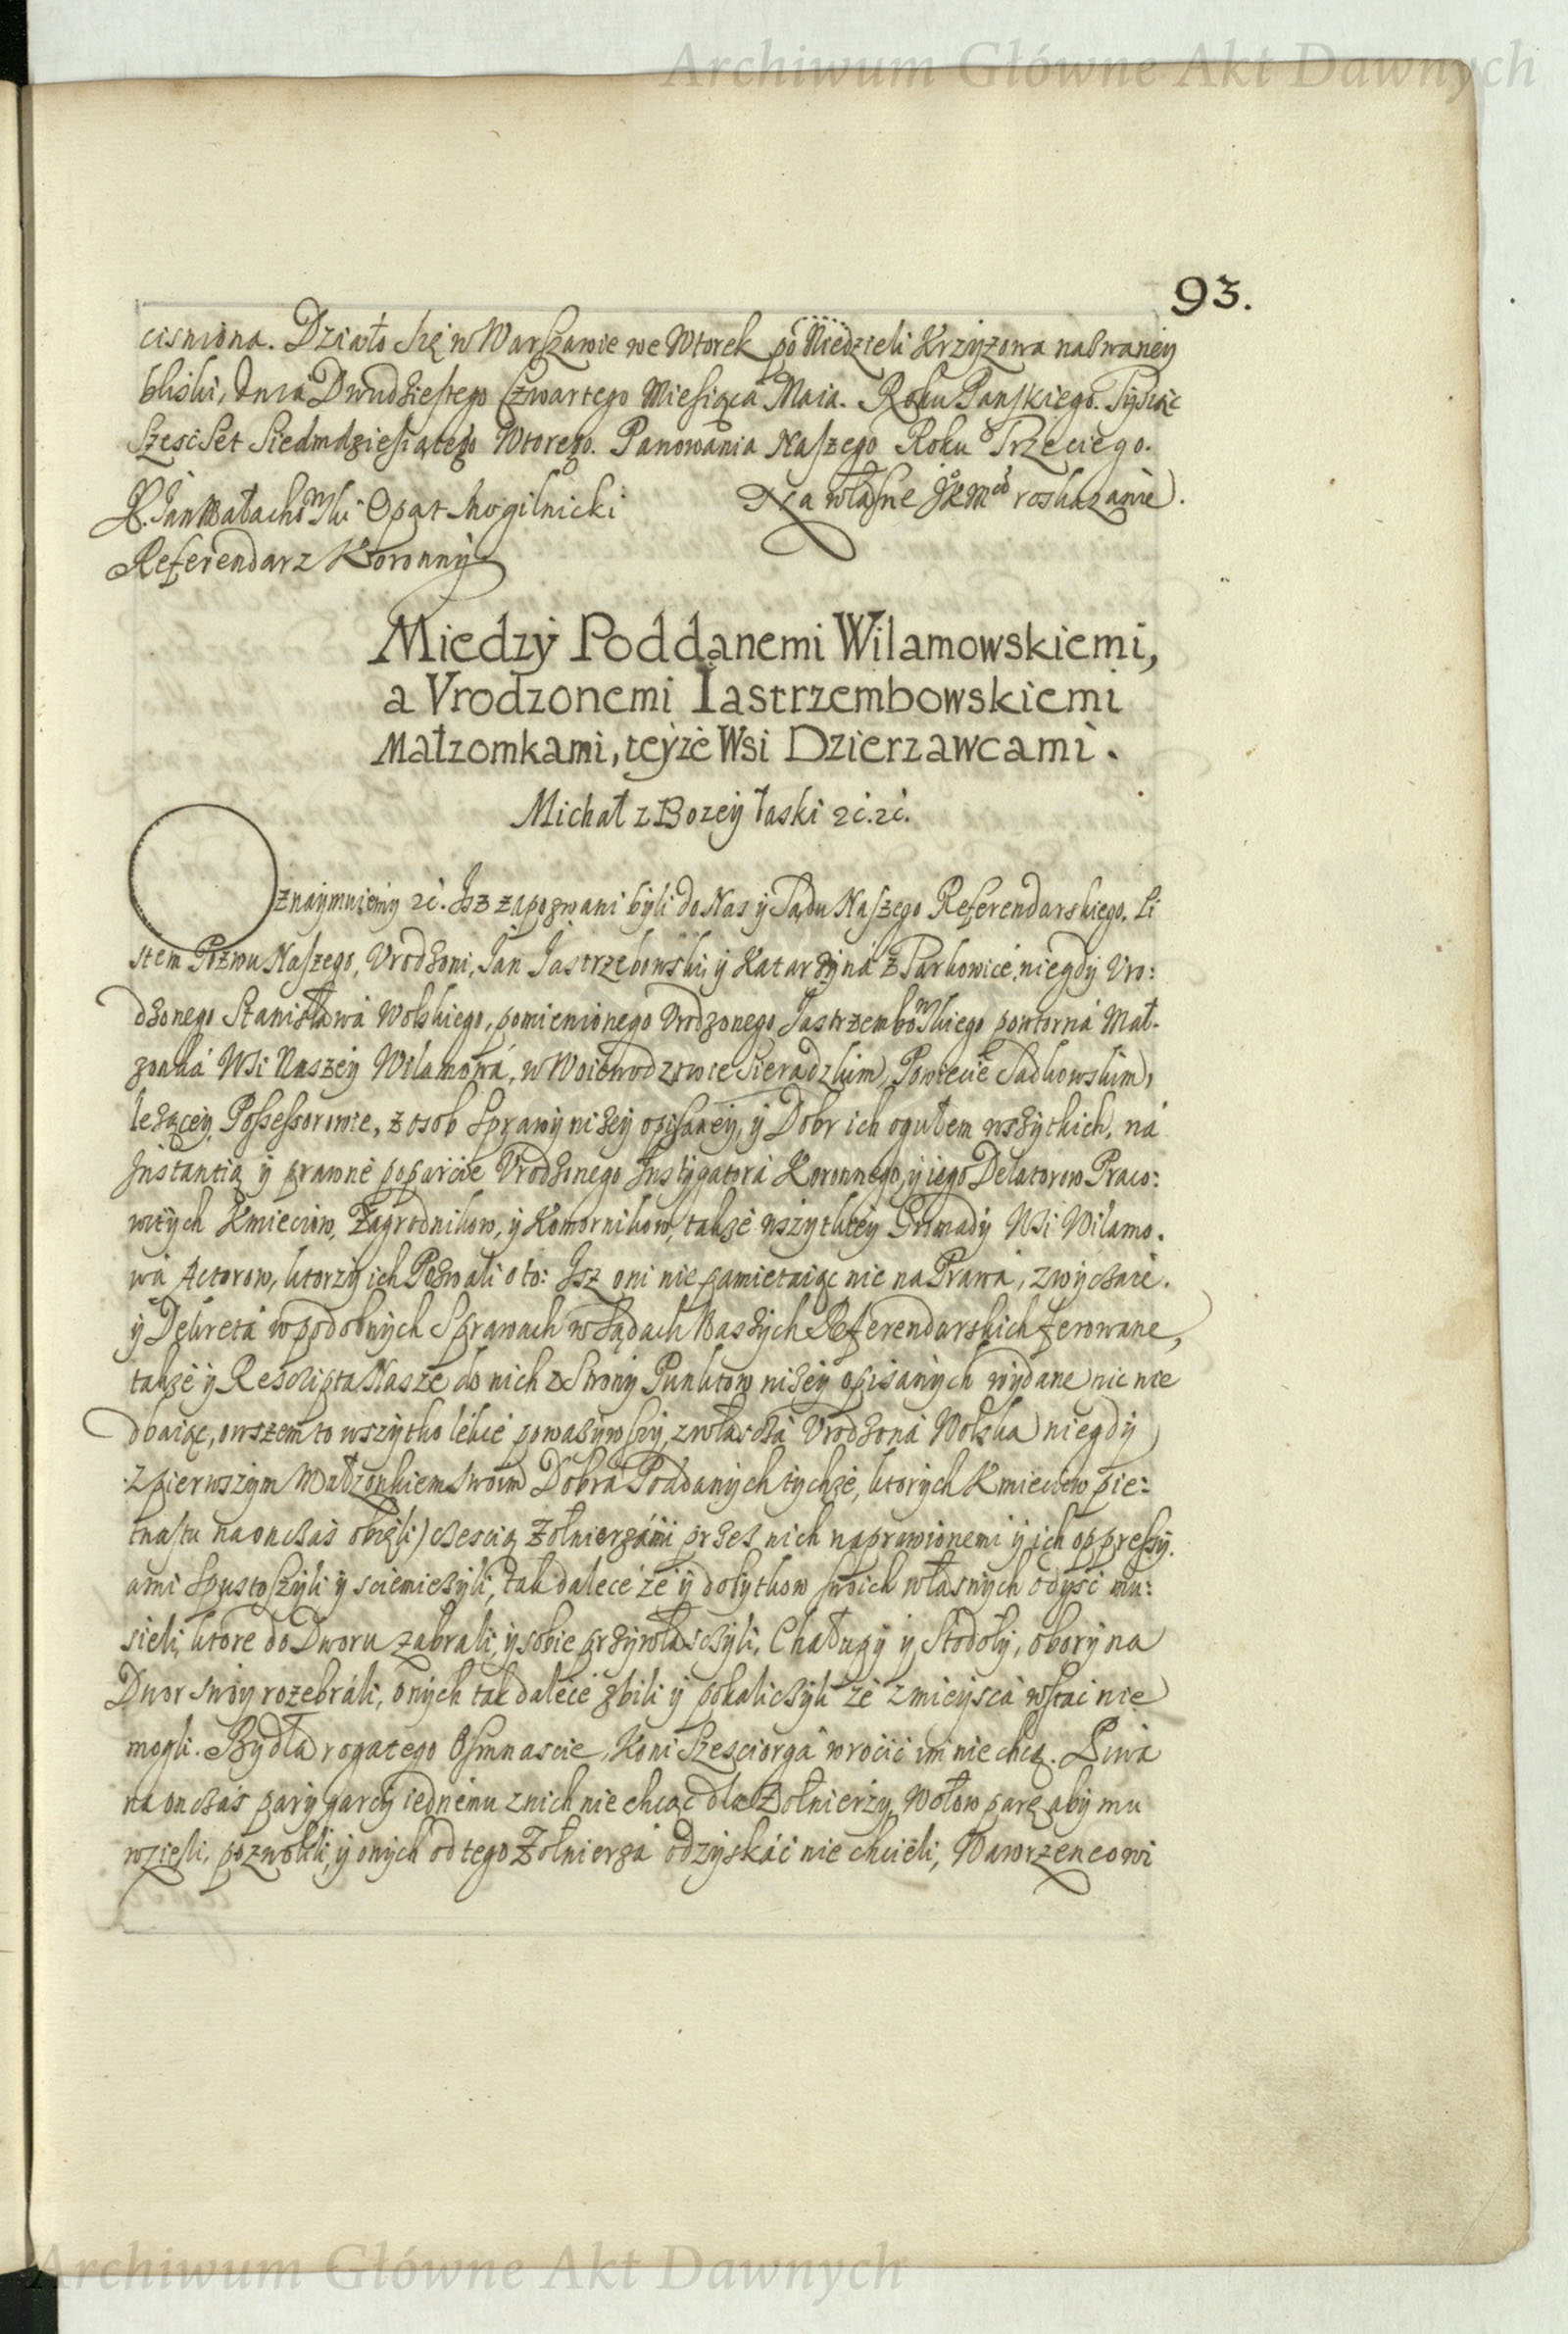 Archiwum Główne Akt Dawnych
93.
cisniona. Działo się w Warszawie we Wtorek po Niedzieli Krzyzowa nazwaney
bliski, dnia Dwudziestego Czwartego Miesiąca Maia. Roku Panskiego. Tysiąc
Szescset Siedmdziesiątego Wtorego. Panowania Naszego Roku Trzeciego.
X. Jan Małachowski Opat Mogilnicki Na własne JKMci roskazanie.
Referendarz Koronny
Miedzy Poddanemi Wilamowskiemi,
a Vrodzonemi Iastrzembowskiemi
Małzomkami, teyze Wsi Dzierzawcami.
Michał z Bozey łaski ꝛc. ꝛc.
Oznaymuiemy ꝛc. Isz zapozwani byli do Nas y Sądu Naszego Referendarskiego. Li
stem Pozwu Naszego, Vrodzoni, Jan Jastrzebowski y Katarzyna z Parkowic, niegdy Vro:
dzonego Stanisława Wolskiego, pomienionego Vrodzonego Jastrzembowskiego powtorna Mał-
zonka Wsi Naszey Wilamowa, w Woiewodztwie Sieradzkim, Powiecie Sadkowskim,
lezącey, Possessorowie, z osob sprawy nizey opisaney, y Dobr ich ogułem wszytkich, na
Instantią y prawne poparcie Vrodzonego Instygatora Koronnego, y iego Delatorow Praco:
witych Kmieciow, Zagrodnikow, y Komornikow, takze wszytkiey Gromady Wsi Wilamo.
wa Actorow, ktorzy ich Pozwali o to: Isz oni nie pamietaiąc nic na Prawa, zwyczaie.
y Dekreta w podobnych Sprawach w Sądach Naszych Referendarskich ferowane,
takze y Rescripta Nasze do nich z Strony Punktow nizey opisanych wydane nic nie
dbaiąc, owszem to wszytko lekce powazywszy, zwłascza Vrodzona Wolska niegdy
z pierwszym Małzonkiem swoim Dobra Poddanych tychze, ktorych Kmieciow pie:
tnastu na onczas obięli) czescią Zołnierzami przez nich naprawionemi y ich oppressy.
ami spustoszyli y sciemiezyli, tak dalece ze y dobytkow swoich własnych odyść mu:
sieli, ktore do Dworu zabrali, y sobie przywłasczyli, Chałupy y Stodoły, obory na
Dwor swoy rozebrali, onych tak dalece zbili y pokaliczyli ze z mieysca wstac nie
mogli. Bydła rogatego Osmnascie, Koni Szesciorga wrocić im nie chcą. Piwa
na onczas pary garcy iednemu z nich nie chcąc dla Zołnierzy, Wołow parę aby mu
wzieli, pozwolili, y onych od tego Zołnierza odzyskać nie chcieli, Wawrzencowi
Archiwum Główne Akt Dawnych